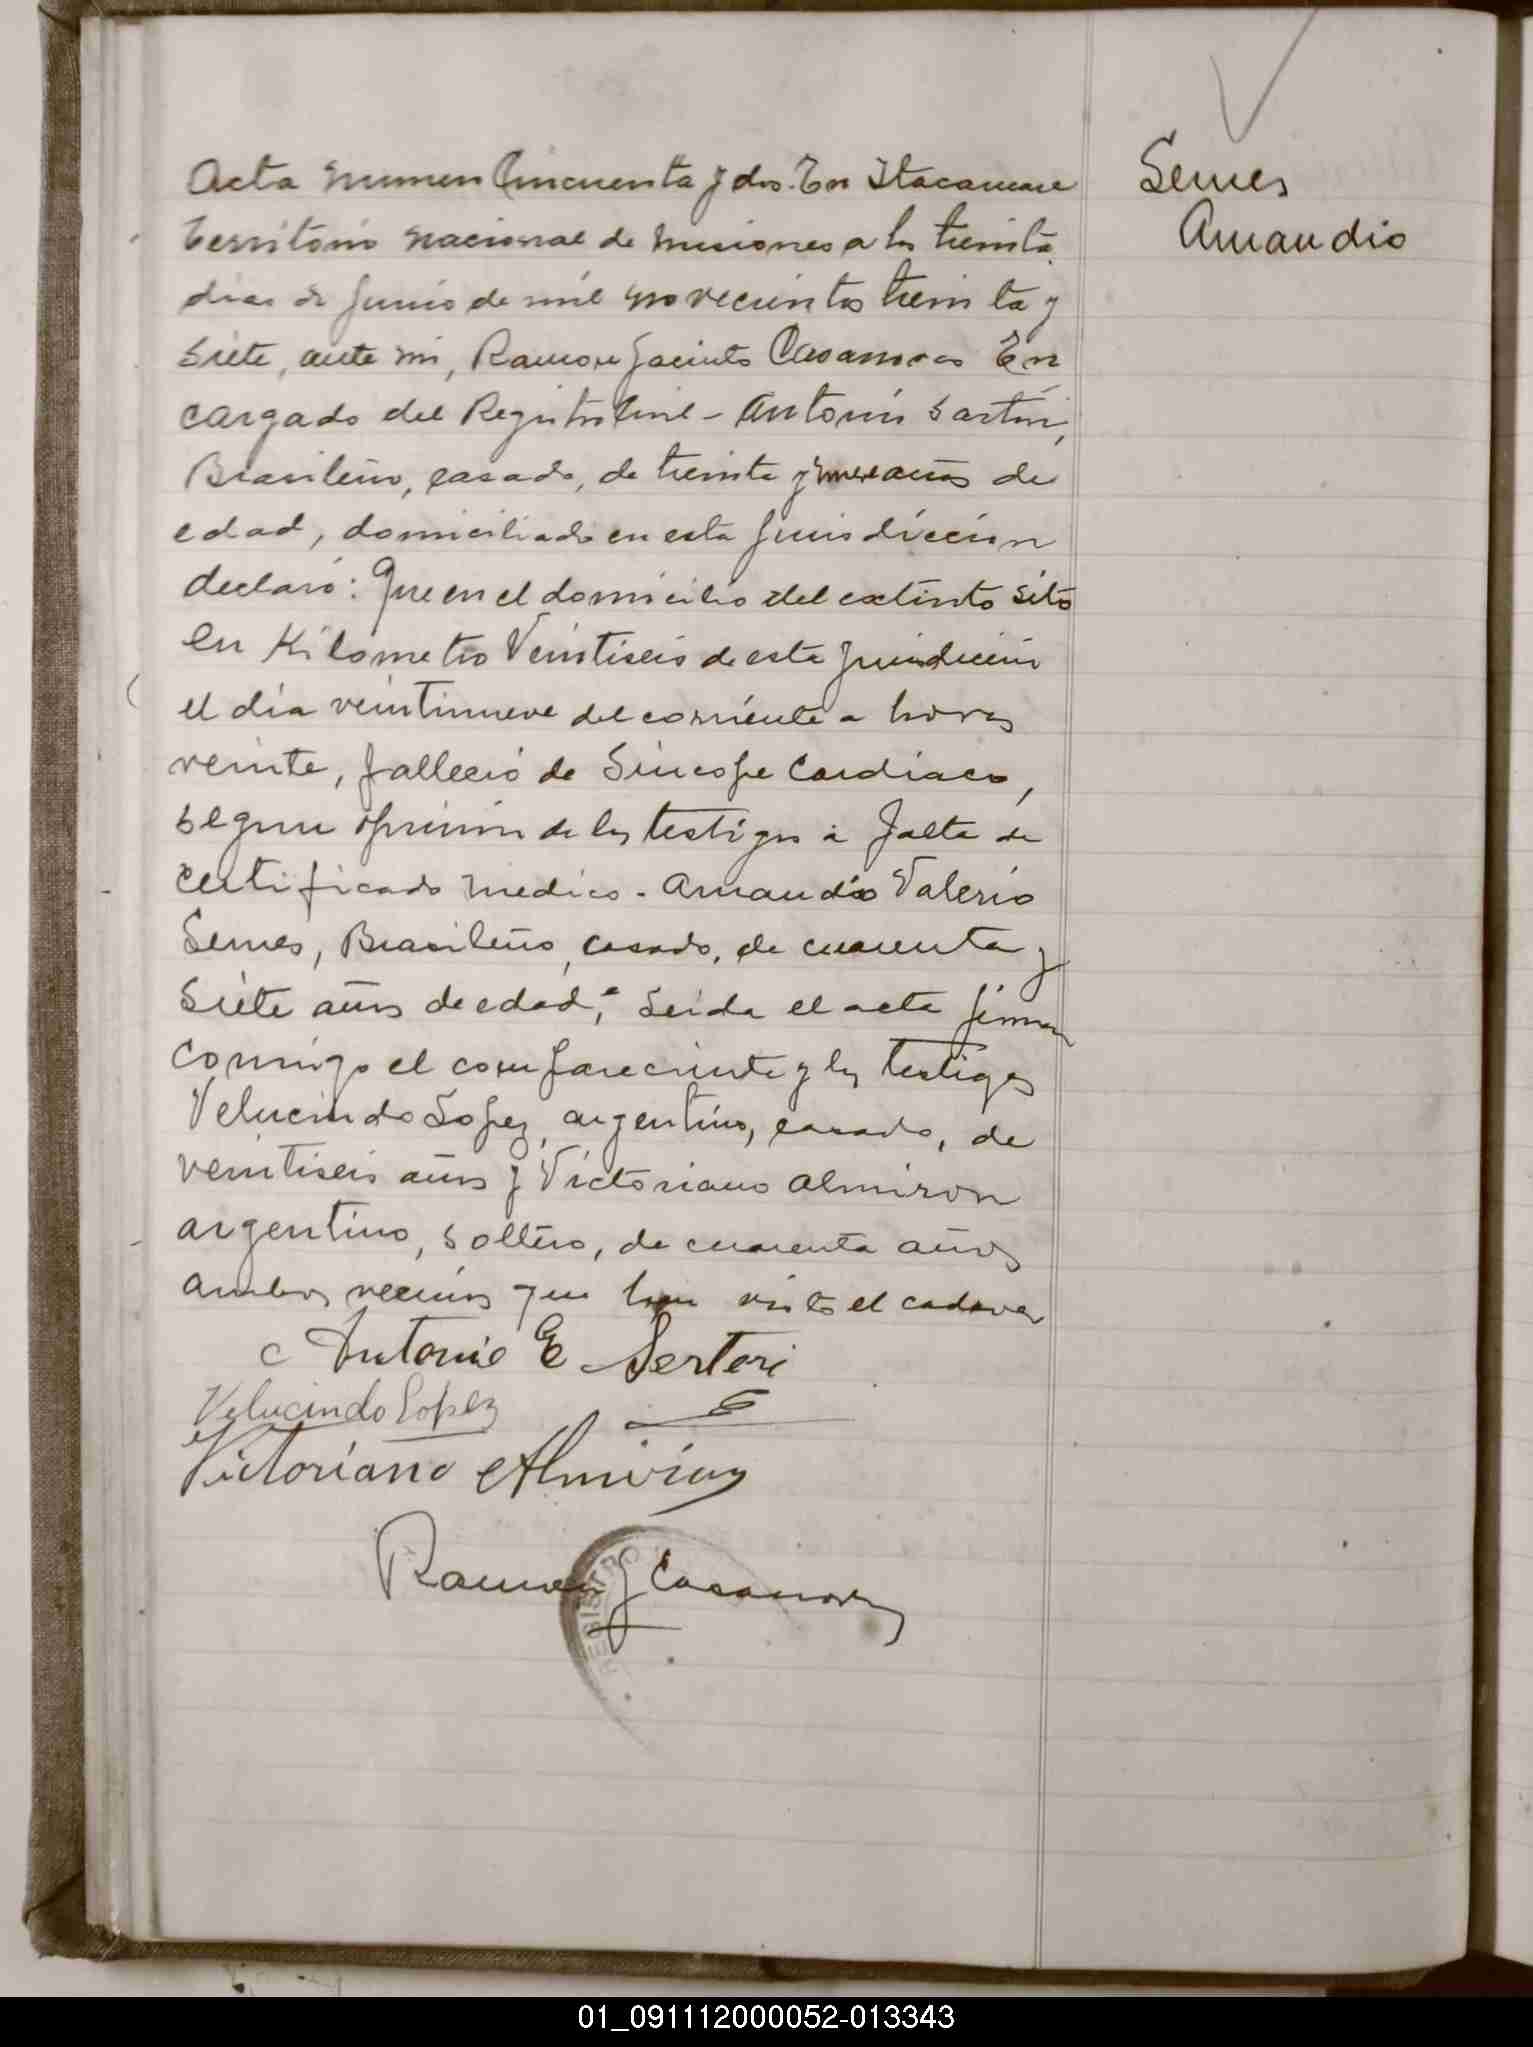 Acta numero Cincuenta y dos. En Itacaruare
territorio nacional de misiones a los treinta
dias de Junio de mil novecientos treinta y
siete, ante mi, Ramon Jacinto Casanovas En
cargado del Registro Civil - Antonio Sartori,
Brasileño, casado, de treinta y nueve años de
edad, domiciliado en esta Jurisdiccion
declaró: Que en el domicilio del extinto sito
en Kilometro Veintiseis de esta Jurisdiccion
el día veintinueve del corriente a horas
veinte, falleció de Sincope Cardiaco,
segun opinion de los testigos a falta de
certificado medico - Amandio Valerio
Semes, Brasileño, casado, de cuarenta y
siete años de edad, Leida el acta firman
conmigo el compareciente y los testigos
Velucindo Lopez, argentino, casado, de
veintiseis años y Victoriano Almiron
argentino, soltero, de cuarenta años
ambos vecinos que han visto el cadaver
Antonio E Sertori
Velucindo Lopez
Victoriano Almirón
Ramon J Casanovas
REGISTRO
Semes
Amandio
01_091112000052-013343